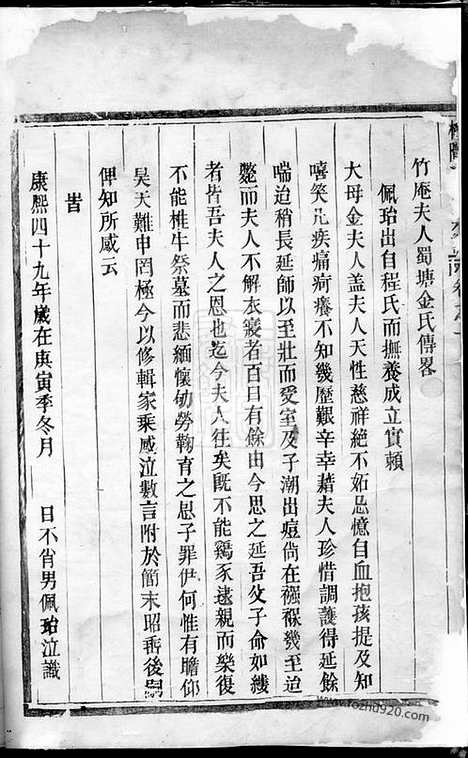 竹庵夫人蜀塘金氏傳畧
佩珆出自程氏而撫養成立實賴
大母金夫人盖夫人天性慈祥絶不妬忌憶自血抱孩提及知
嘻笑凢疾痛疴癢不知幾歷艱辛幸藉夫人珍惜調護得延餘
喘迨稍長延師以至壯而受室及子潮出痘尙在襁褓幾至迫
斃而夫人不解衣寢者百日有餘由今思之延吾父子命如縷
者皆吾夫人之恩也迄今夫人往矣旣不能鷄豕逮親而樂復
不能椎牛祭墓而悲緬懷劬勞鞠育之恩子罪伊何惟有瞻仰
昊天難申罔極今以修輯家乘感泣數言附於簡末昭垂後
俾知所感云
旹
康熙四十九年歲在庚寅季冬月 日不省男佩珆泣識
www.fozhu920.com